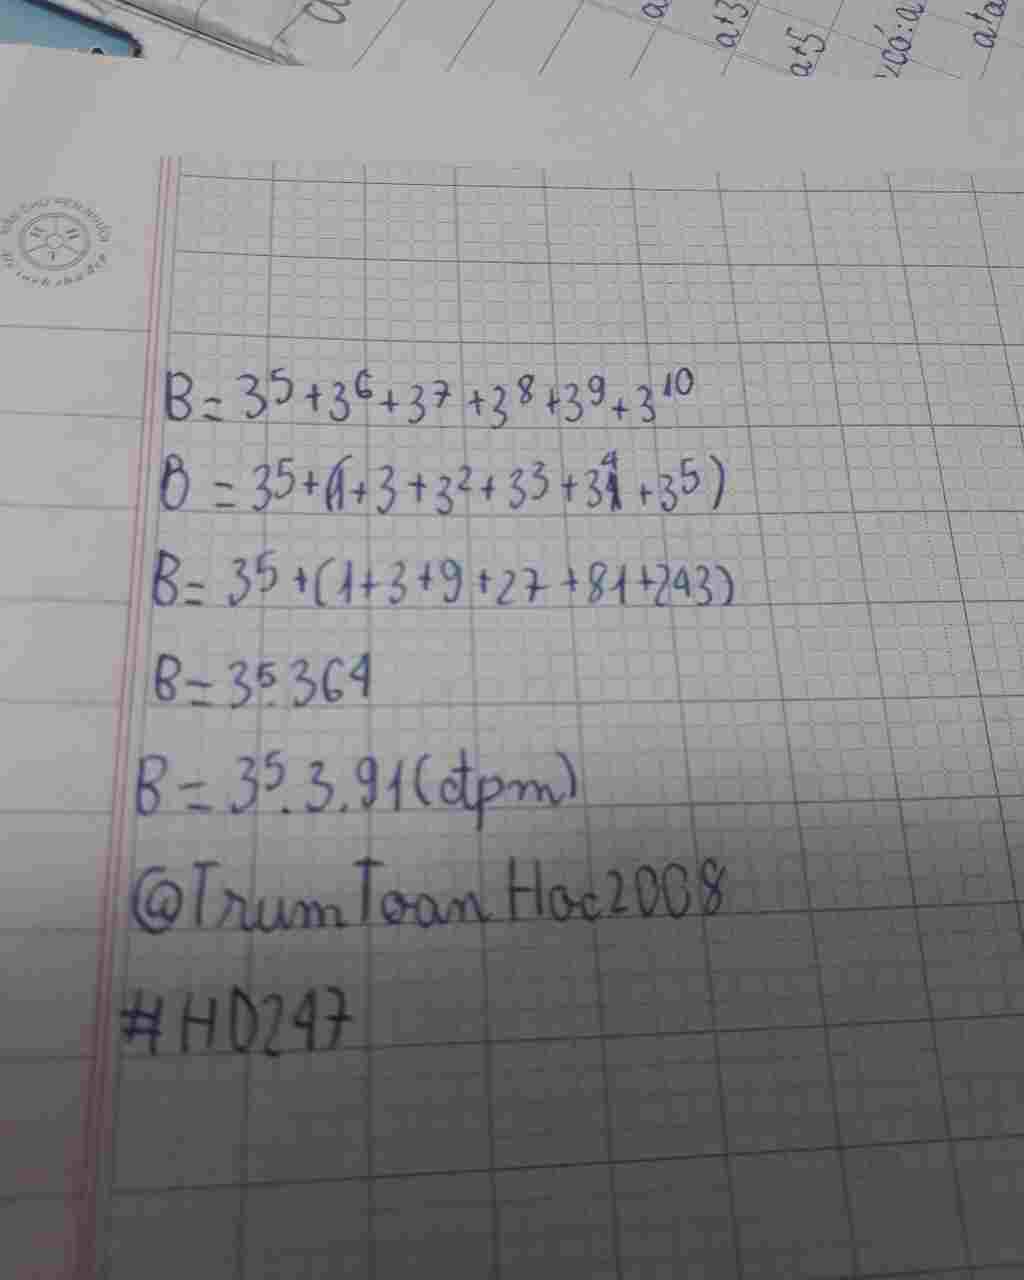 a
a+3
a+5
a+a
B = 3⁵ + 3⁶ + 3⁷ + 3⁸ + 3⁹ + 3¹⁰
B = 3⁵ + (1 + 3 + 3² + 3³ + 3⁴ + 3⁵)
B = 3⁵ + (1 + 3 + 9 + 27 + 81 + 243)
B = 3⁵. 364
B = 3⁵. 3. 91 (đpm)
@TrumToanHoc2008
#HD247